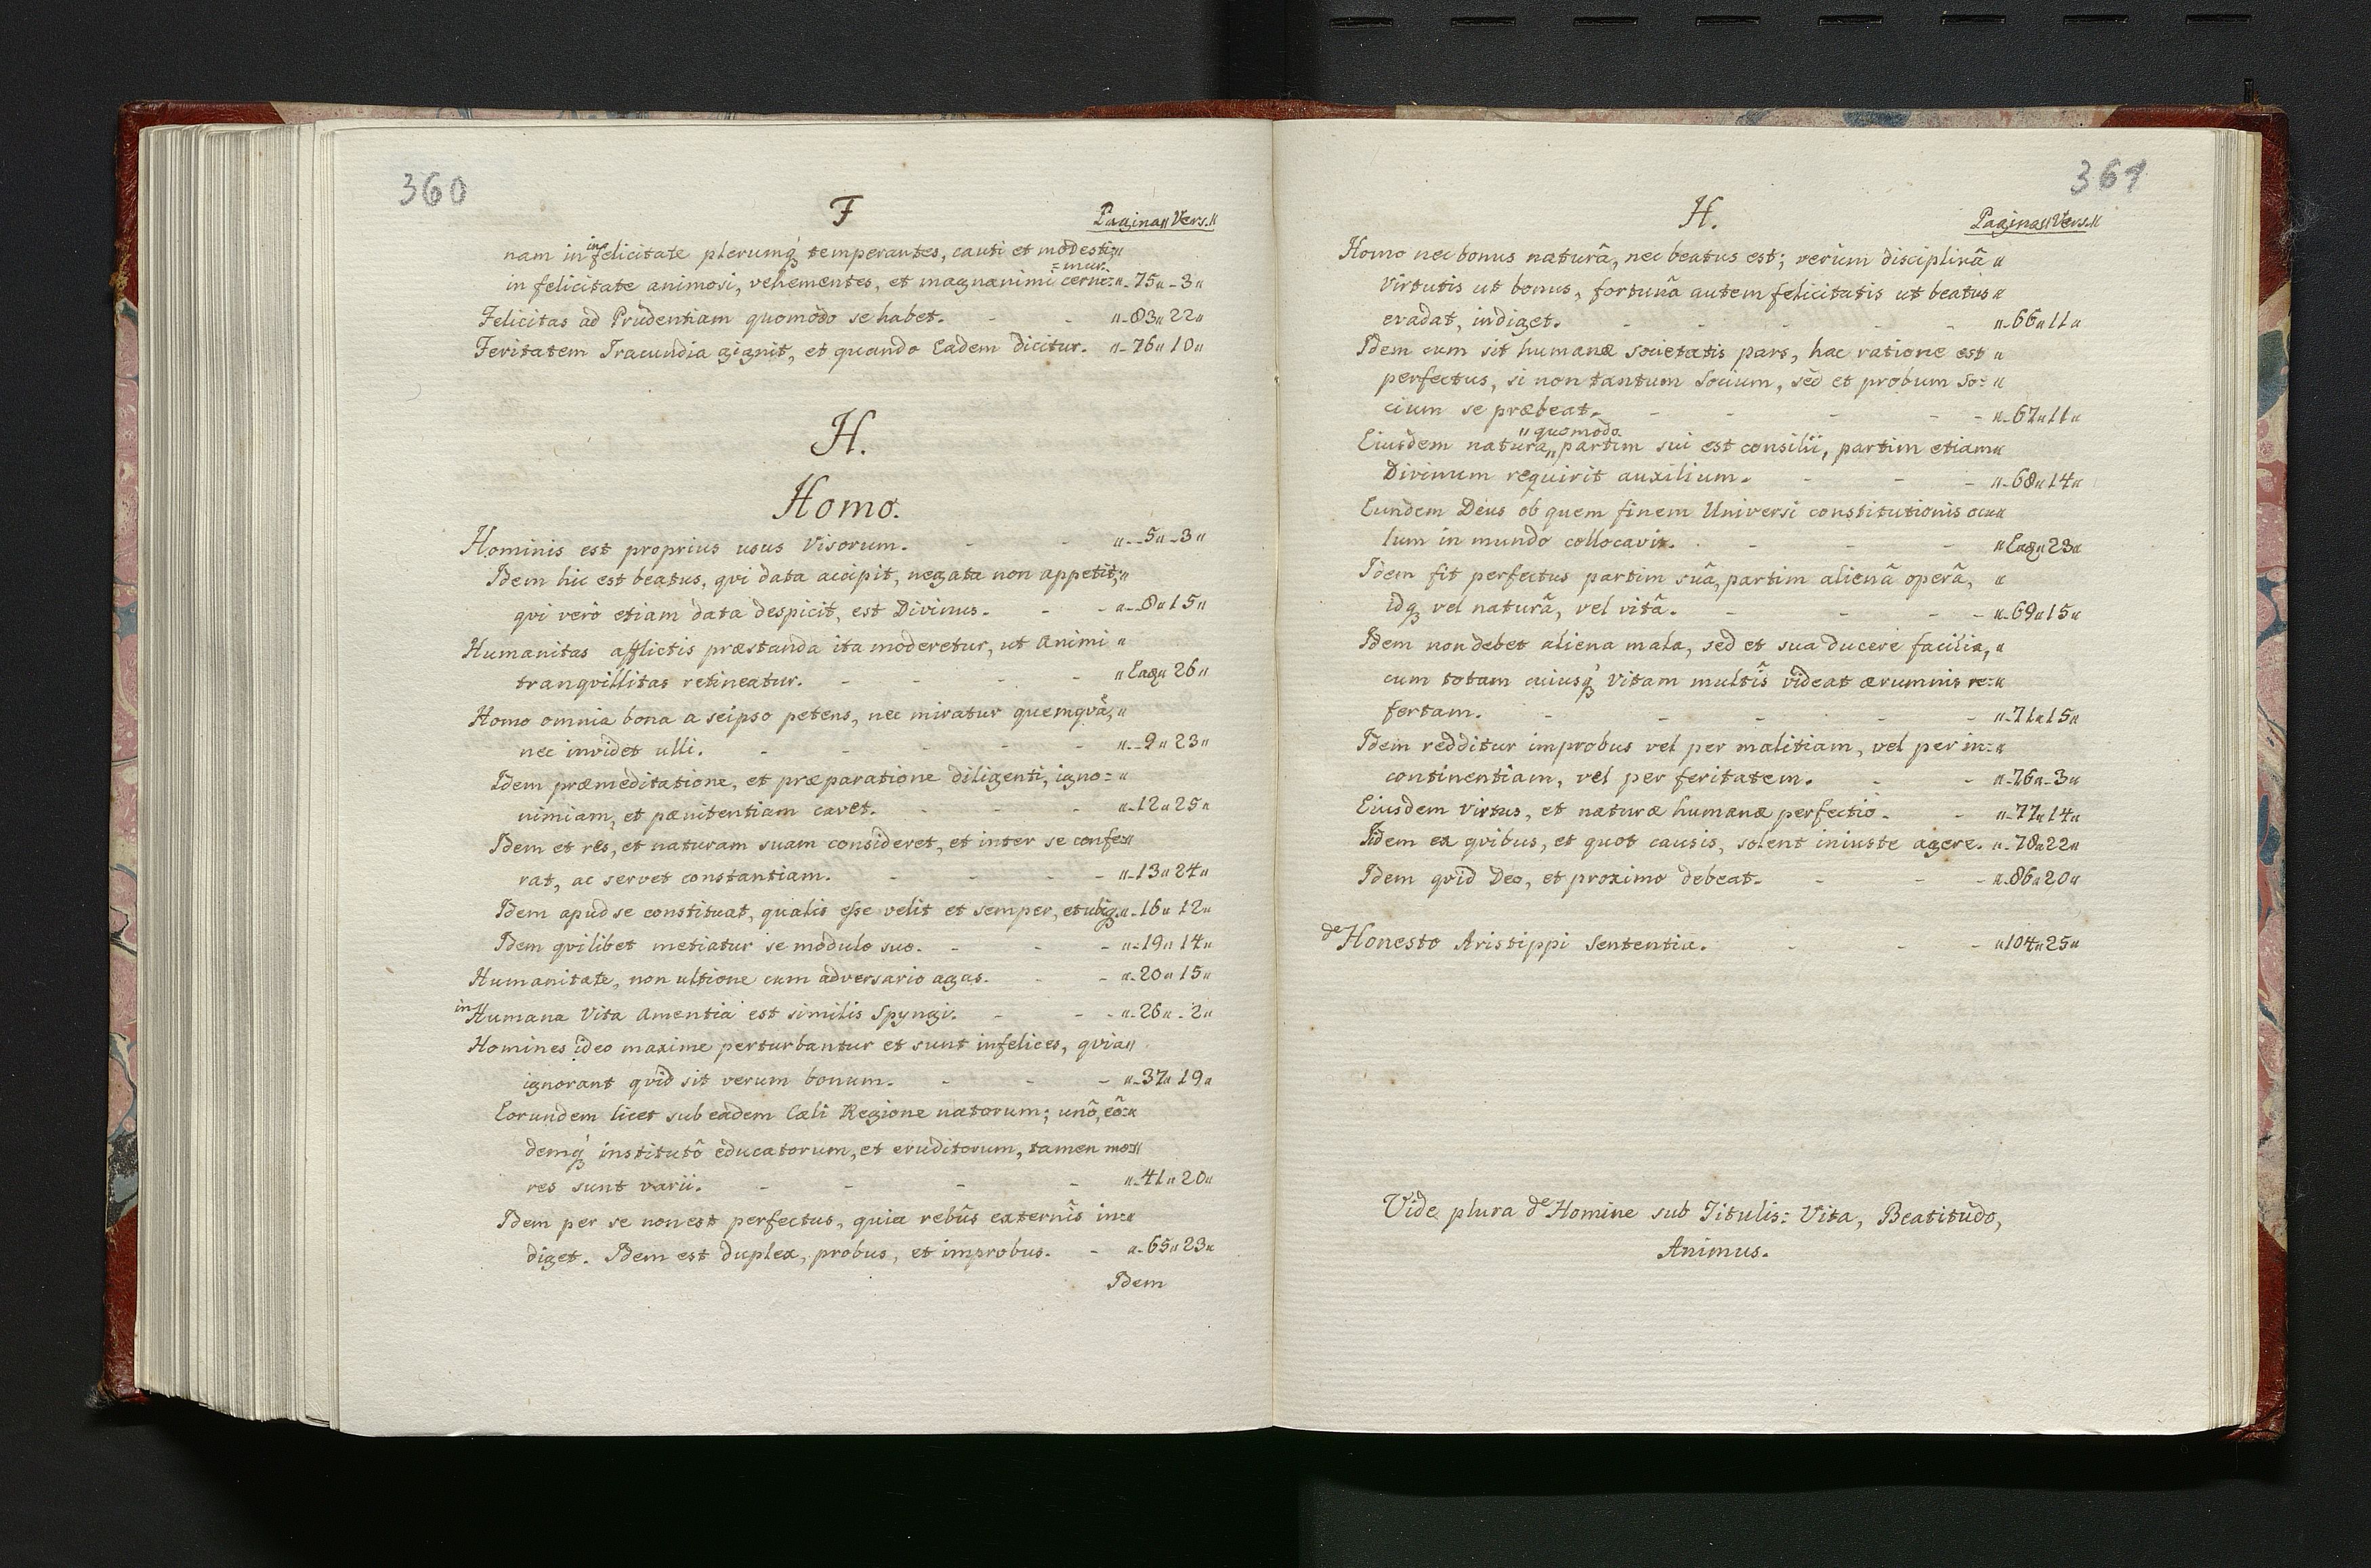 360
F
Pagina〃Vers.〃
nam in infelicitate plerumq́ʒ temperantes, cauti et modesti;〃
in felicitate animosi, vehementes, et magnanimi cerni=mur.〃-75〃-3〃
Felicitas ad Prudentiam quomodo se habet. - - 〃-83〃22〃
Feritatem Iracundia gignit, et quando Eadem dicitur. 〃-76〃10〃
H.
Homo.
Hominis est proprius usus Visorum. - - 〃--5〃-3〃
Idem hic est beatus, qvi data accipit, negata non appetit;〃
qvi verò etiam data despicit, est Divinus. - - 〃--8〃15〃
Humanitas afflictis præstanda ita moderetur, ut Animi 〃
tranqvillitas retineatur. - - - - 〃Eaq〃26〃
Homo omnia bona a seipso petens, nec miratur quemqvã,〃
nec invidet ulli. - - - - - 〃--9〃23〃
Idem præmeditatione, et præparatione diligenti, igno= 〃
nimiam, et pænitentiam cavet. - - - 〃-12〃25〃
Idem et res, et naturam suam consideret, et inter se confe=〃
rat, ac servet constantiam. - - - - 〃-13〃24〃
Idem apud se constituat, qualis esse velit et semper, et ubiqʒ.〃-16〃12〃
Idem qvilibet metiatur se modulo suo. - - - 〃-19〃14〃
Humanitate, non ultione cum adversario agas. - - 〃-20〃15〃
in Humana Vita Amentia est similis Spyngi. - - - 〃-26〃-2〃
Homines ideo maxime perturbantur et sunt infelices, qvia〃
ignorant qvid sit verum bonum. - - - 〃-37〃19〃
Eorundem licet sub eadem Cæli Regione natorum; unô, eô=〃
demq́ʒ institutô educatorum, et eruditorum, tamen mo=〃
res sunt varii. - - - - 〃-41〃20〃
Idem per se non est perfectus, quia rebûs externîs in=〃
diget. Idem est duplex, probus, et improbus. - 〃-65〃23〃
Idem
361
H.
Pagina〃Vers.〃
Homo nec bonus naturâ, nec beatus est; verùm disciplinâ 〃
Virtutis ut bonus, fortunâ autem felicitatis ut beatus 〃
evadat, indiget. - - - - - 〃-66〃11〃
Idem cum sit humanæ societatis pars, hac ratione est 〃
perfectus, si non tantum Socium, sed et probum So= 〃
cium se præbeat. - - - - - 〃-67〃11〃
Eiusdem natura〃 〃quomodo partim sui est consilii, partim etiam〃
Divinum requirit auxilium. - - - 〃-68〃14〃
Eundem Deus ob quem finem Universi constitutionis ocu〃
lum in mundo collocavit. - - - 〃Eaq〃23〃
Idem fit perfectus partim suâ, partim alienâ operâ, 〃
idqʒ vel naturâ, vel vitâ. - - - - 〃-69〃15〃
Idem non debet aliena mala, sed et sua ducere facilia, 〃
cum totam cuiusq́ʒ Vitam multîs videat ærumnis re=〃
fertam. - - - - - 〃-71〃15〃
Idem redditur improbus vel per malitiam, vel per in=〃
continentiam, vel per feritatem. - - 〃-76〃-3〃
Eiusdem Virtus, et naturæ humanæ perfectio. - 〃-77〃14〃
Iidem ex qvibus, et quot causis, solent iniuste agere. 〃-78〃22〃
Idem qvid Deo, et proximo debeat. - - - 〃-86〃20〃
de Honesto Aristippi Sententia. - - - 〃104〃25〃
Vide plura de Homine sub Titulis: Vita, Beatitudo,
Animus.